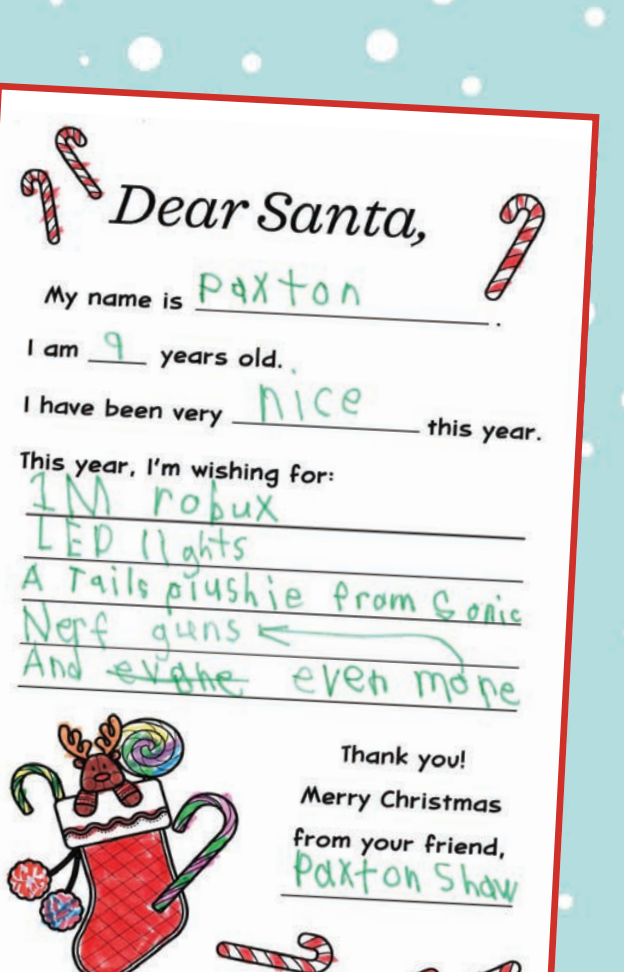 Dear Santa,
My name is Paxton.
I am 9 years old.
I have been very nice this year.
This year, I'm wishing for:
1M robux
LED lights
A Tails plushie from Sonic
Nerf guns
And evohe even more
Thank you!
Merry Christmas
from your friend,
Paxton Shaw